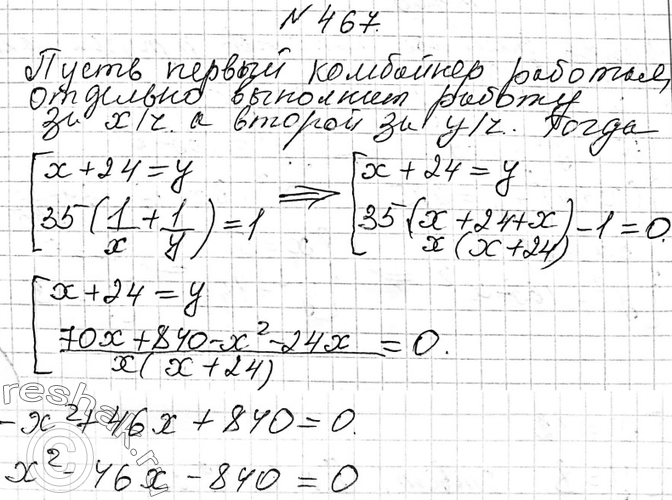 № 467.
Пусть первый комбайнер работая,
отдельно выполнит работу
за x/ч. а второй за y/ч. Тогда
[x+24=y ⟹ [x+24=y
[35(1/x+1/y)=1 [35(x+24+x)/x(x+24)-1=0.
[x+24=y
[70x+840-x²-24x/x(x+24)=0.
-x²+46x+840=0.
x²-46x-840=0
reshak.ru